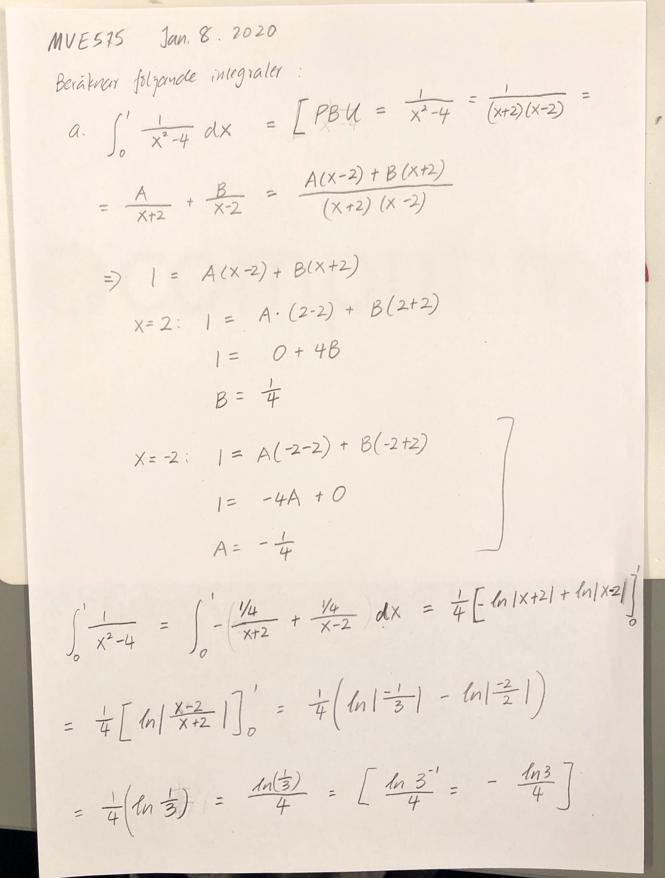 MVE575 Jan. 8. 2020
Beräknar följande integraler :
a. ∫₀¹ 1/(x²-4) dx = [ PBU = 1/(x²-4) = 1/((x+2)(x-2)) =
= A/(x+2) + B/(x-2) = (A(x-2) + B(x+2))/((x+2)(x-2))
⇒ 1 = A(x-2) + B(x+2)
x=2: 1 = A·(2-2) + B(2+2)
1 = 0 + 4B
B = 1/4
x=-2: 1 = A(-2-2) + B(-2+2)
1 = -4A + 0
A = -1/4 ]
∫₀¹ 1/(x²-4) = ∫₀¹ -(1/4)/(x+2) + (1/4)/(x-2) dx = 1/4 [-ln|x+2| + ln|x-2|]₀¹
= 1/4 [ln|(x-2)/(x+2)|]₀¹ = 1/4 (ln|-1/3| - ln|-2/2|)
= 1/4 (ln 1/3) = ln(1/3)/4 = [ ln 3⁻¹/4 = - ln3/4 ]